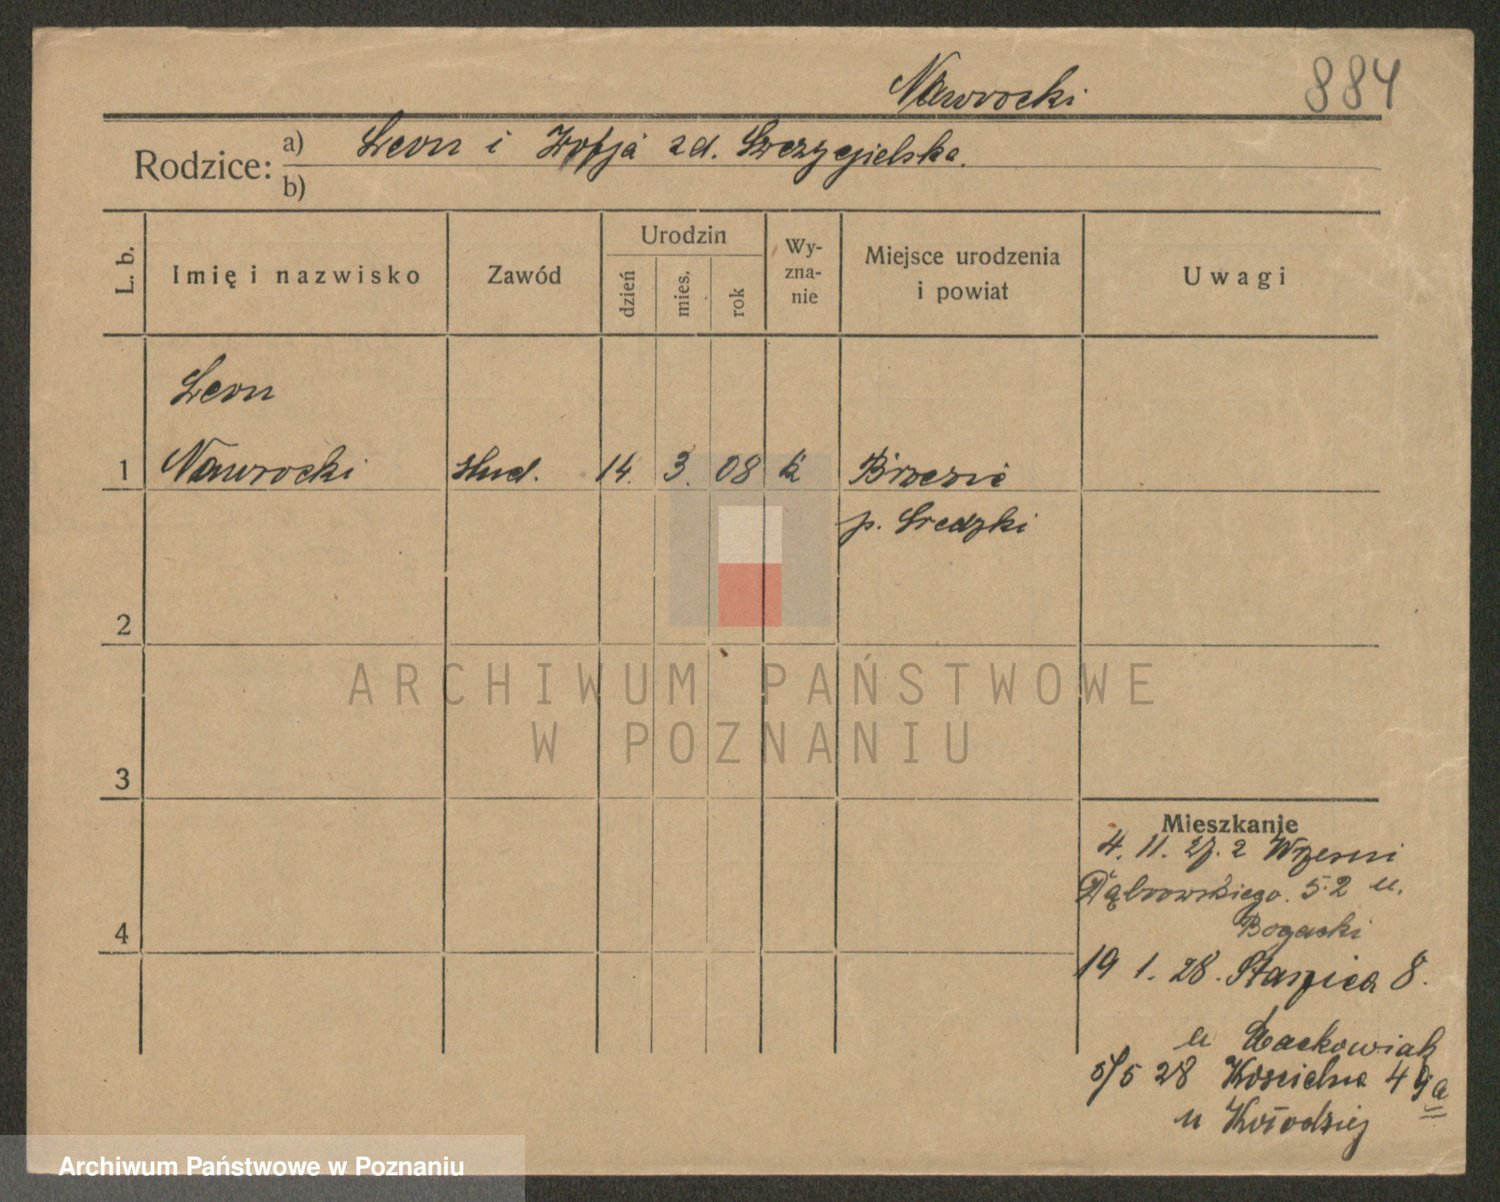 Nawrocki 884
Rodzice: a) Leon i Zofja zd. Szczygielska.
b)
L. b. Imię i nazwisko Zawód Urodzin dzień mies. rok Wy-zna-nie Miejsce urodzenia i powiat Uwagi
Leon
1 Nawrocki stud. 14. 3. 08 k Brzezie
p. Sredzki
2
ARCHIWUM PAŃSTWOWE
W POZNANIU
3
Mieszkanie
4. 11. 27. z Wrześni
Dąbrowskiego. 52 u.
4 Bogacki
19 1. 28. Staszica 8.
u Maćkowiak
5/5 28 Kościelna 4 a
u Kołodziej
Archiwum Państwowe w Poznaniu